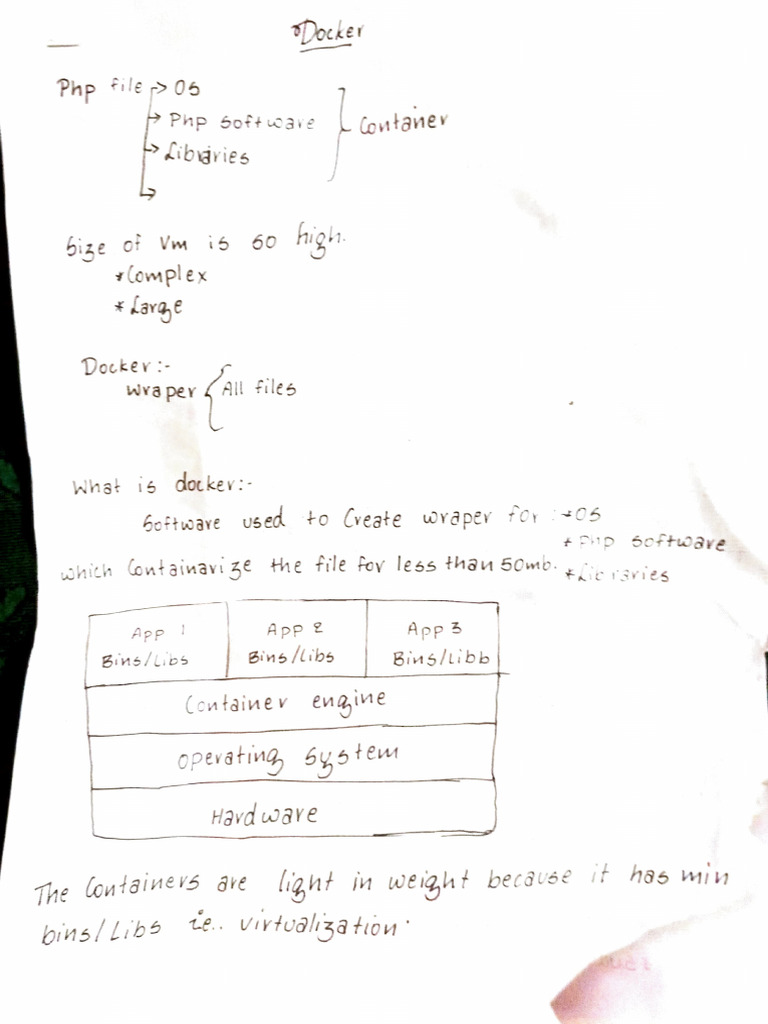 Docker
Php file → OS
→ Php software } Container
→ Libraries
→
Size of Vm is so high.
* Complex
* Large
Docker :-
wraper { All files
What is docker:-
Software used to Create wraper for : * OS
* Php software
which Containarize the file for less than 50mb. * Libraries
App 1 App 2 App 3
Bins/Libs Bins/Libs Bins/Libb
Container engine
Operating System
Hardware
The Containers are light in weight because it has min
bins/Libs ie.. virtualization.